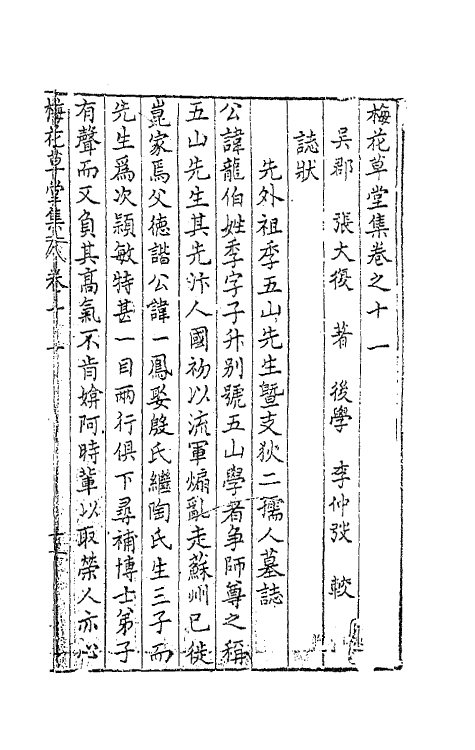 梅花草堂集卷之十一
吳郡 張大復 著 後學 李仲 較
誌狀
先外祖季五山先生暨支狄二孺人墓誌
公諱龍伯姓季字子升别號五山學者争師尊之稱
五山先生其先汴人國初以流軍煽亂走蘇州已徙
崑家焉父德諧公諱一鳳娶殷氏繼陶氏生三子而
先生爲次頴敏特甚一目兩行俱下尋補博士弟子
有聲而又負其高氣不肯媕阿時輩以取榮人亦心
梅花草堂集 卷十一